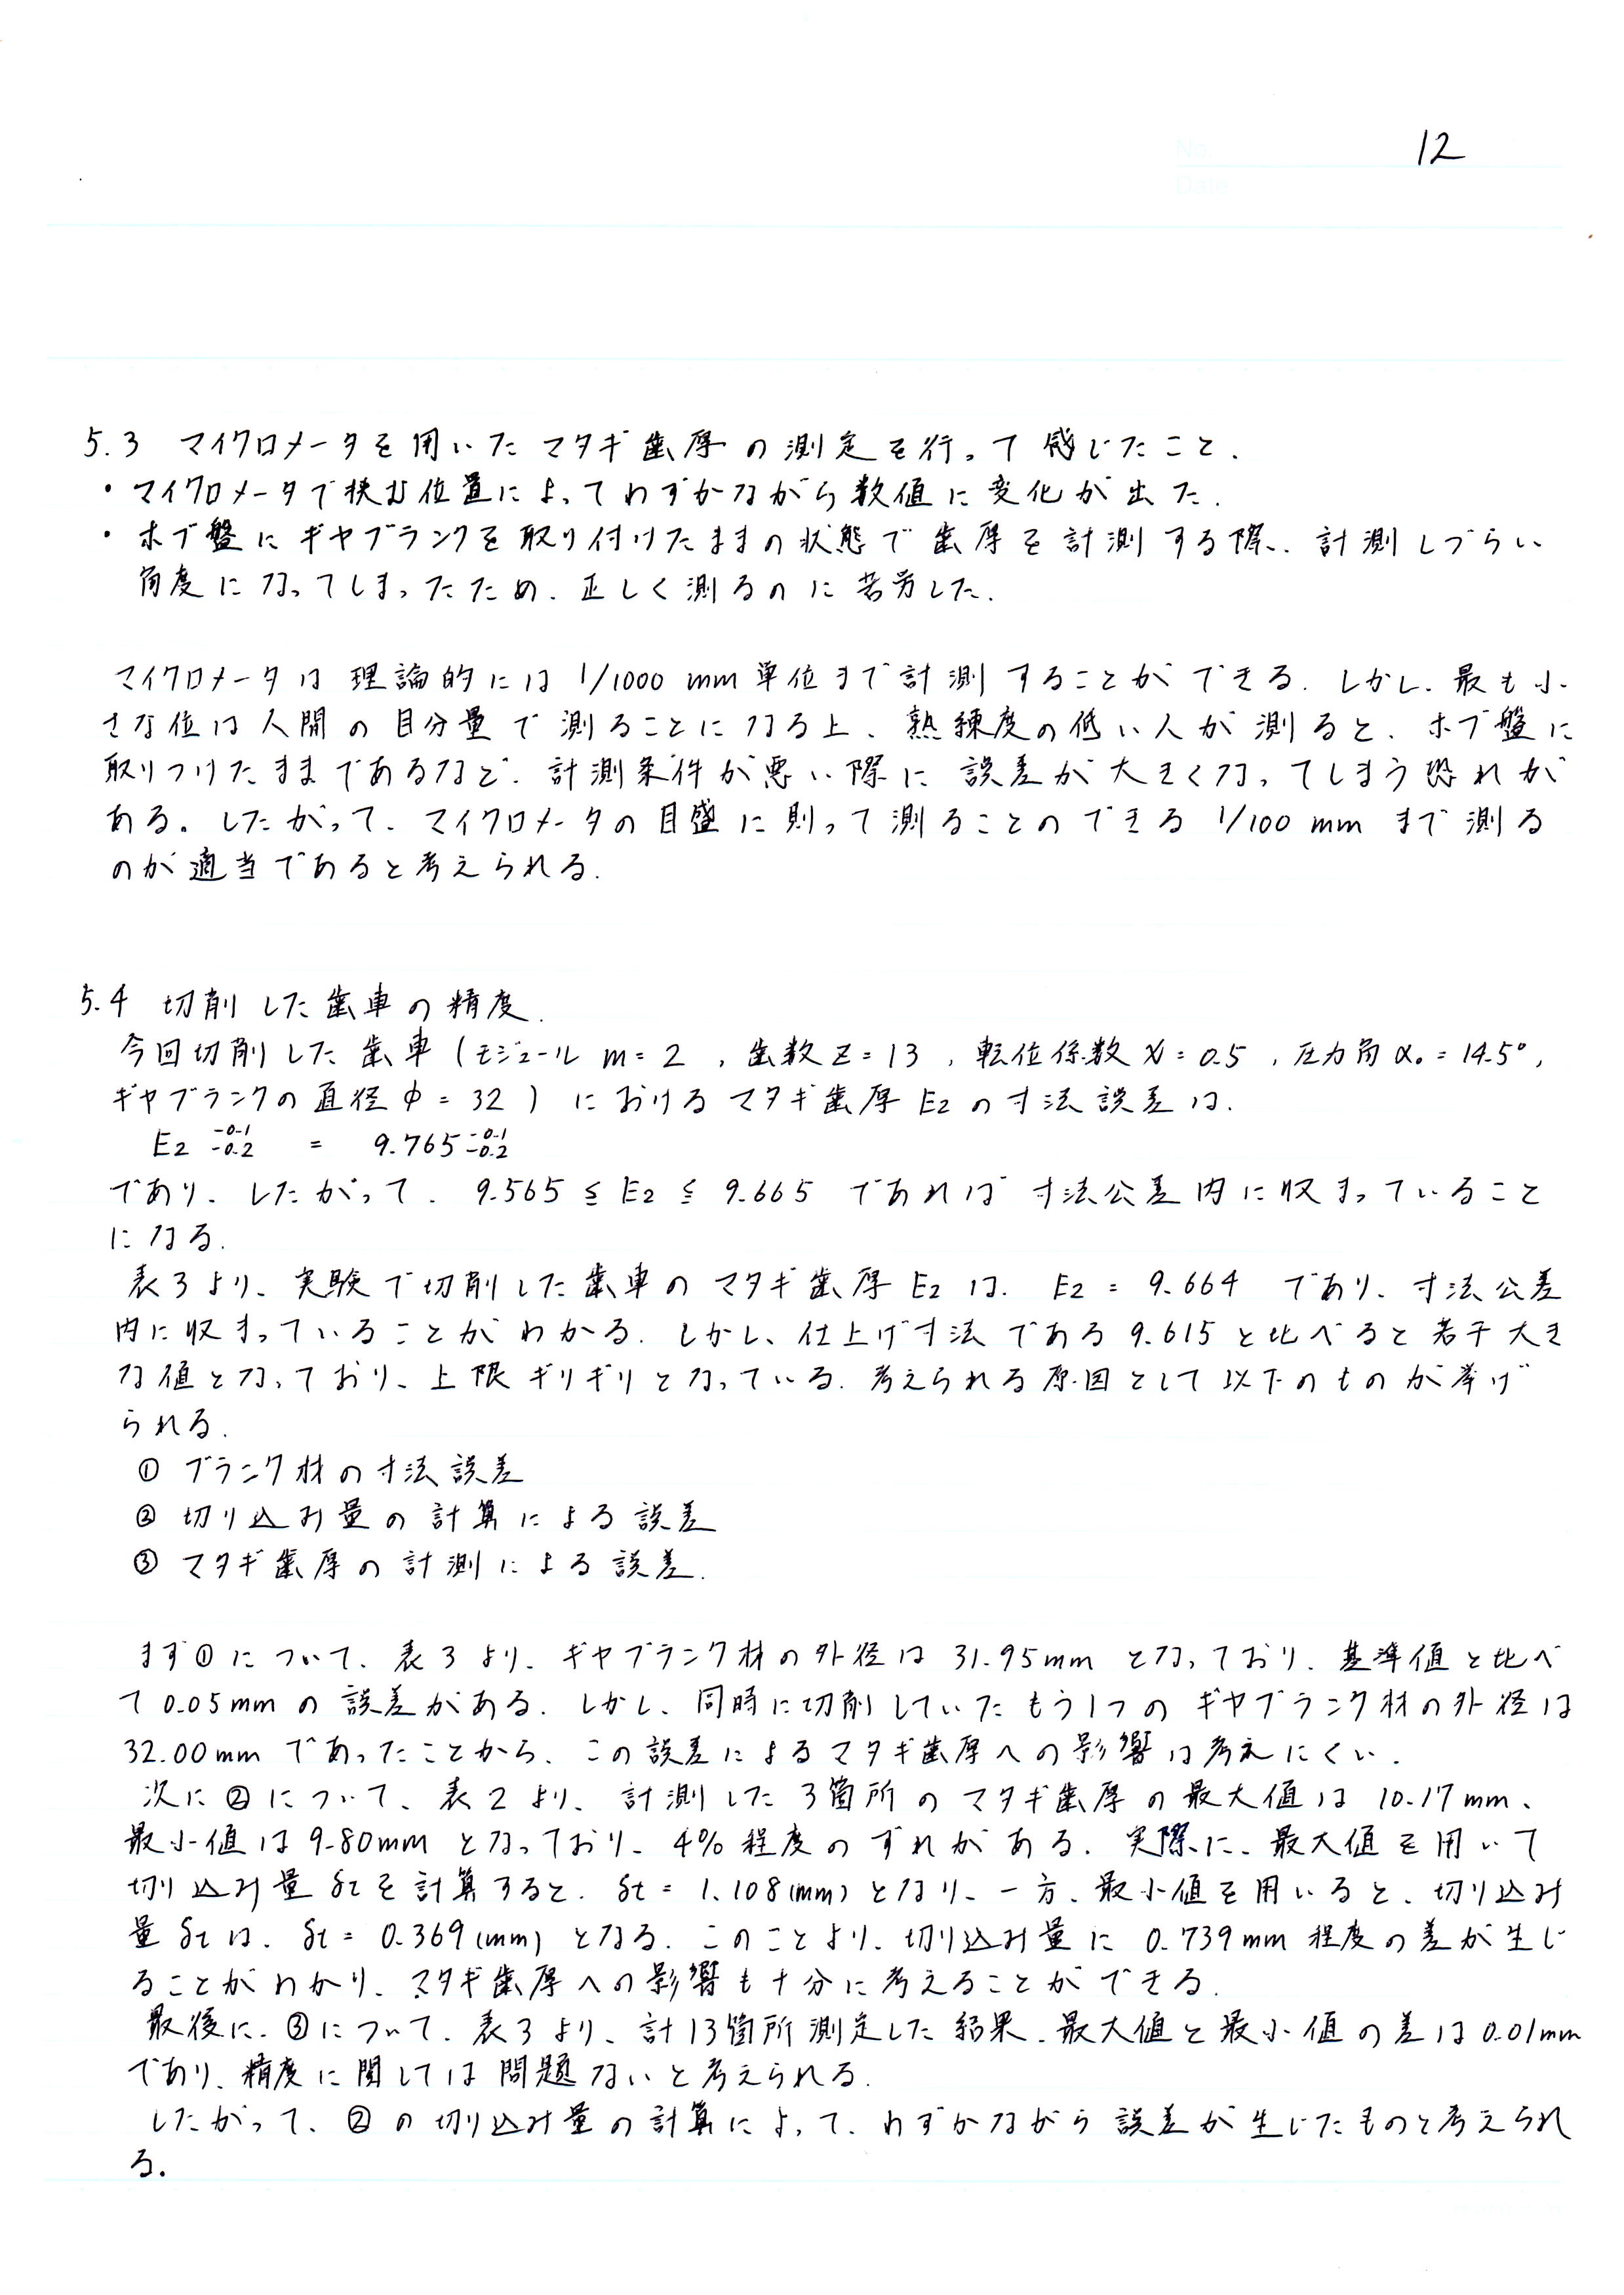 12
5.3 マイクロメータを用いたマタギ歯厚の測定を行って感じたこと.
・マイクロメータで挟む位置によってわずかながら数値に変化が出た.
・ホブ盤にギヤブランクを取り付けたままの状態で歯厚を計測する際、計測しづらい
角度になってしまったため、正しく測るのに苦労した.
マイクロメータは理論的には 1/1000 mm単位まで計測することができる. しかし、最も小
さな位は人間の目分量で測ることになる上、熟練度の低い人が測ると、ホブ盤に
取りつけたままであるなど、計測条件が悪い際に誤差が大きくなってしまう恐れが
ある。したがって、マイクロメータの目盛に則って測ることのできる 1/100 mm まで測る
のが適当であると考えられる.
5.4 切削した歯車の精度.
今回切削した歯車 (モジュール m=2 , 歯数 Z=13 , 転位係数 x=0.5 , 圧力角 α₀=14.5°,
ギヤブランクの直径 φ=32 ) におけるマタギ歯厚 E2 の寸法誤差は.
E2 -0.1 -0.2 = 9.765 -0.1 -0.2
であり、したがって、9.565 ≦ E2 ≦ 9.665 であれば寸法公差内に収まっていること
になる.
表3より、実験で切削した歯車のマタギ歯厚 E2 は、 E2 = 9.664 であり、寸法公差
内に収まっていることがわかる. しかし、仕上げ寸法である 9.615 と比べると若干大き
な値となっており、上限ギリギリとなっている. 考えられる原因として以下のものが挙げ
られる.
① ブランク材の寸法誤差
② 切り込み量の計算による誤差
③ マタギ歯厚の計測による誤差.
まず①について、表3より、ギヤブランク材の外径は 31.95mm となっており、基準値と比べ
て 0.05mm の誤差がある. しかし、同時に切削していたもう1つのギヤブランク材の外径は
32.00mm であったことから、この誤差によるマタギ歯厚への影響は考えにくい.
次に②について、表2より、計測した3箇所のマタギ歯厚の最大値は 10.17mm、
最小値は 9.80mm となっており、4%程度のずれがある. 実際に、最大値を用いて
切り込み量 δtを計算すると、δt = 1.108(mm) となり、一方、最小値を用いると、切り込み
量 δt は、δt = 0.369(mm) となる. このことより、切り込み量に 0.739mm 程度の差が生じ
ることがわかり、マタギ歯厚への影響も十分に考えることができる.
最後に、③について、表3より、計13箇所測定した結果、最大値と最小値の差は 0.01mm
であり、精度に関しては問題ないと考えられる.
したがって、②の切り込み量の計算によって、わずかながら誤差が生じたものと考えられ
る.